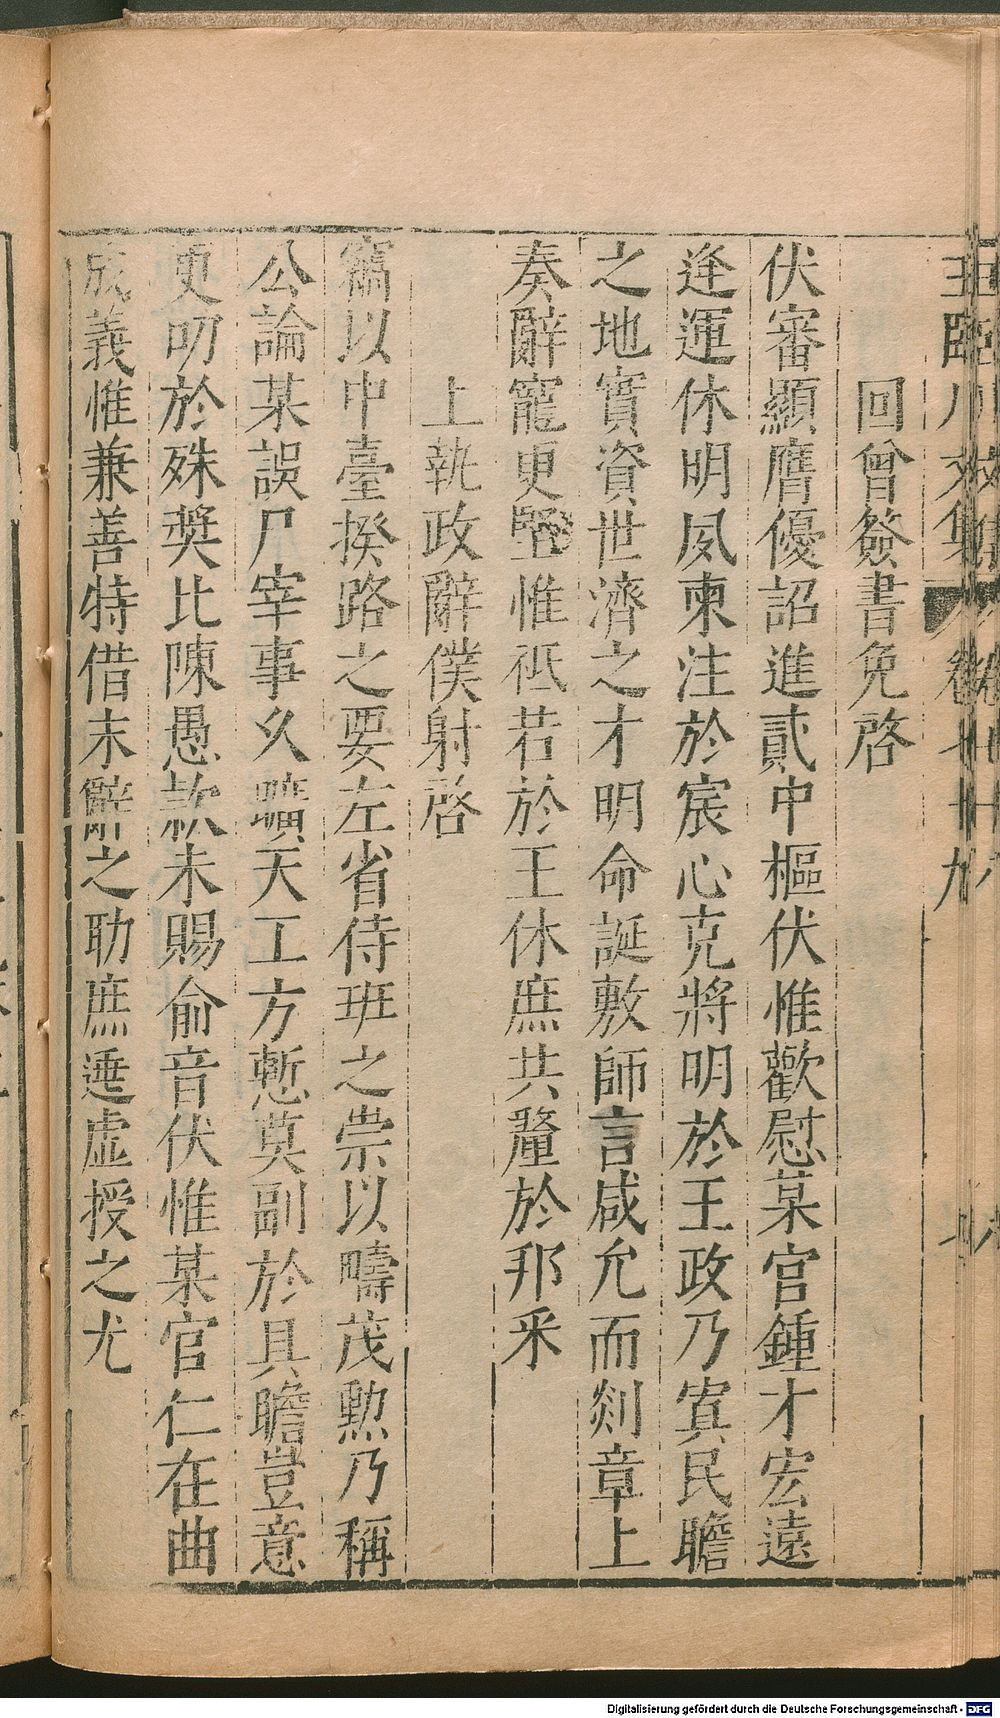 王臨川文集 卷七十九
回曾簽書免啓
伏審顯膺優詔進貳中樞伏惟歡慰某官鍾才宏遠
逢運休明夙柬注於宸心克將明於王政乃寘民瞻
之地實資世濟之才明命誕敷師言咸允而剡章上
奏辭寵更堅惟祗若於王休庶共釐於邦采
上執政辭僕射啓
竊以中臺揆路之要左省侍班之崇以疇茂勲乃稱
公論某誤尸宰事久曠天工方慙莫副於具瞻豈意
更叨於殊奬比陳愚款未賜俞音伏惟某官仁在曲
成義惟兼善特借末辭之助庶逭虛授之尤
Digitalisierung gefördert durch die Deutsche Forschungsgemeinschaft - DFG